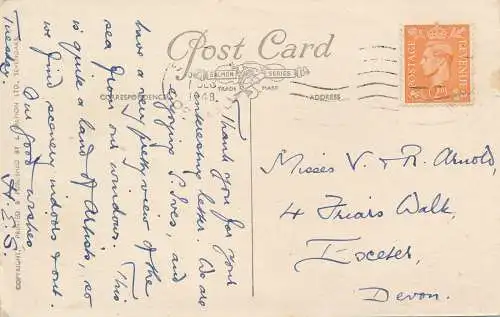 Post Card
SALMON SERIES
TRADE MARK
CORRESPONDENCE
ADDRESS
1948
POSTAGE
REVENUE
2D
Thank you for your
interesting letter. We are
enjoying S. Ives, and
have a very pretty view of the
sea from our windows. This
is quite a land of Artists, so
we find scenery indoors & out.
Our good wishes
H.E.S.
Tuesday.
Misses V. & R. Arnold,
4 Friars Walk,
Exeter,
Devon.
COPYRIGHT. PRINTED & PUBLISHED BY J. SALMON LTD. SEVENOAKS